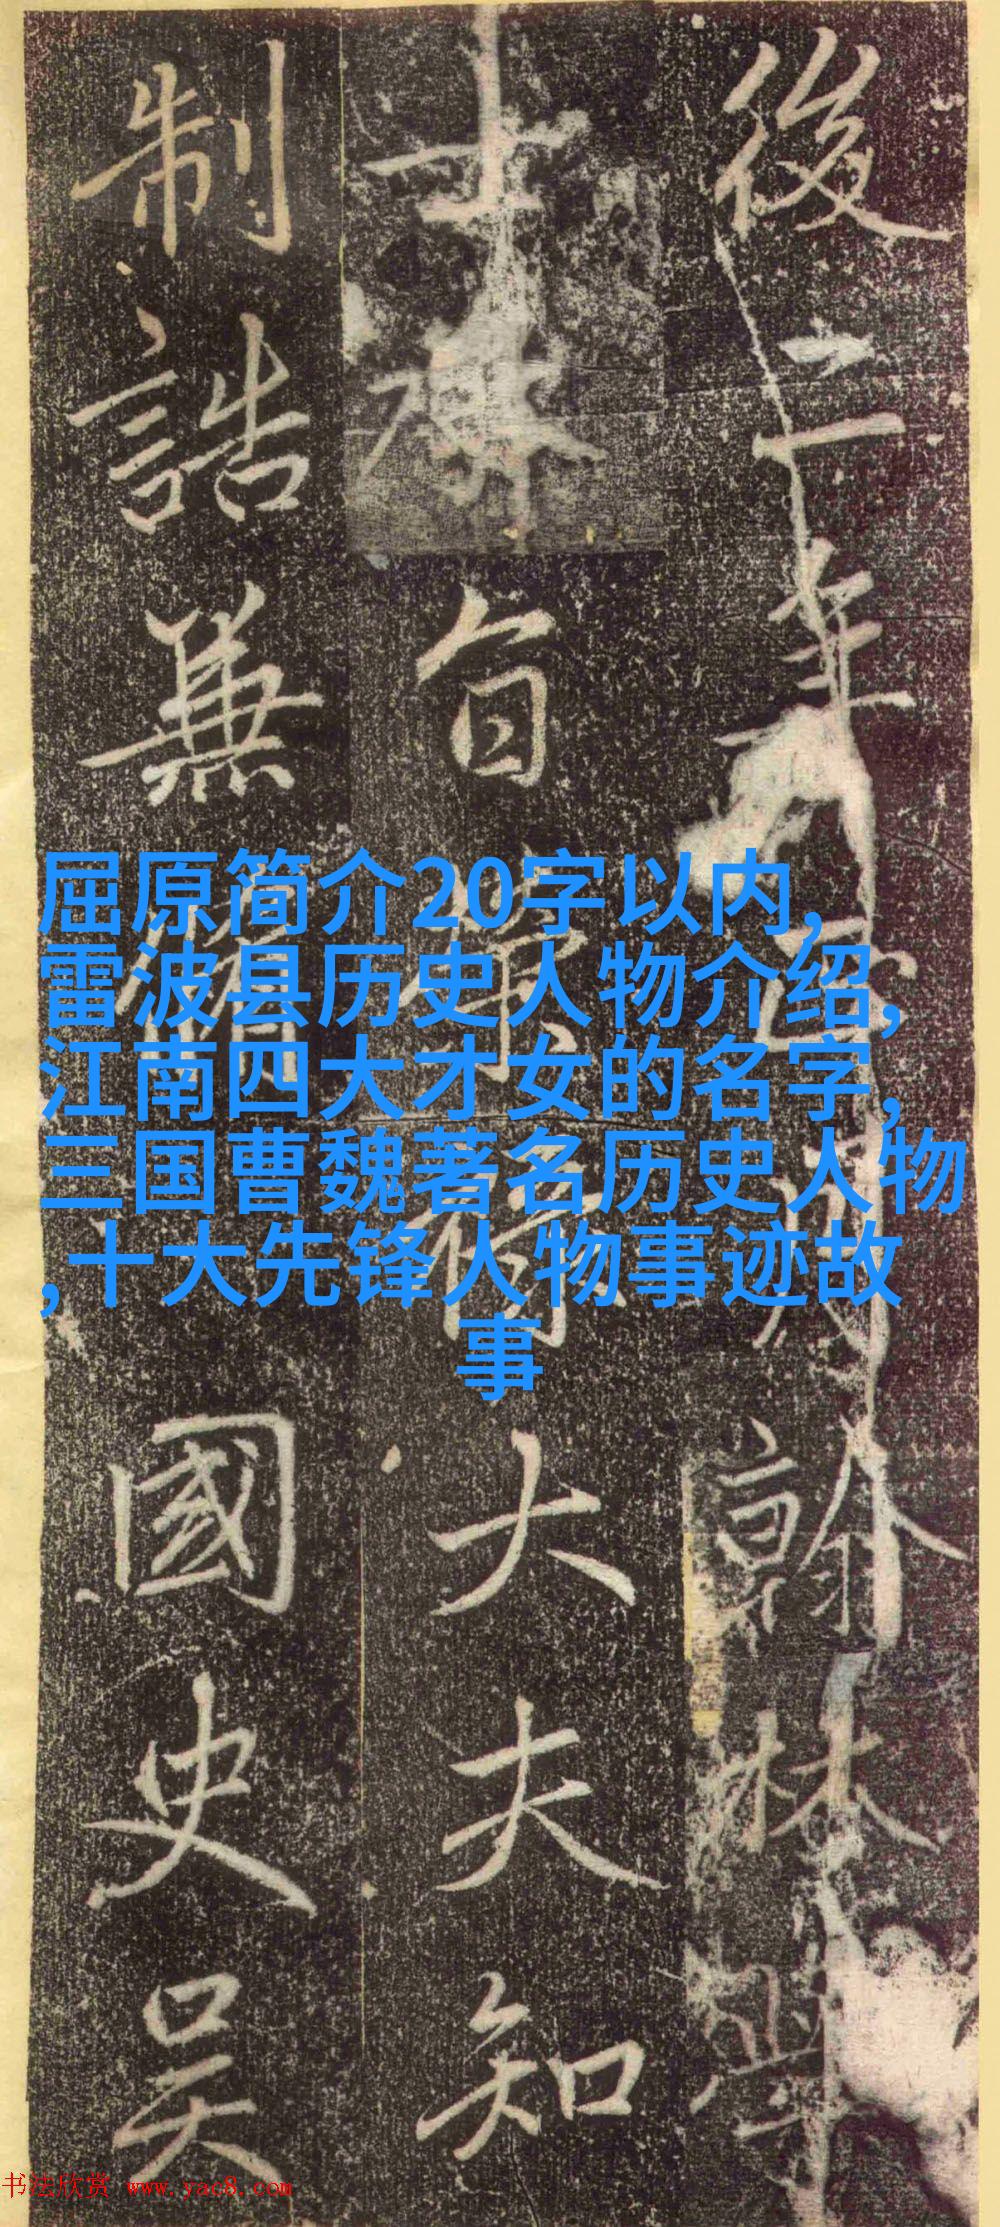 後二年正月翰林學
士承旨榮祿大夫知
制誥兼脩國史吴
屈原简介20字以内,
雷波县历史人物介绍,
江南四大才女的名字,
三国曹魏著名历史人物
,十大先锋人物事迹故
事
书法欣赏 www.yac8.com